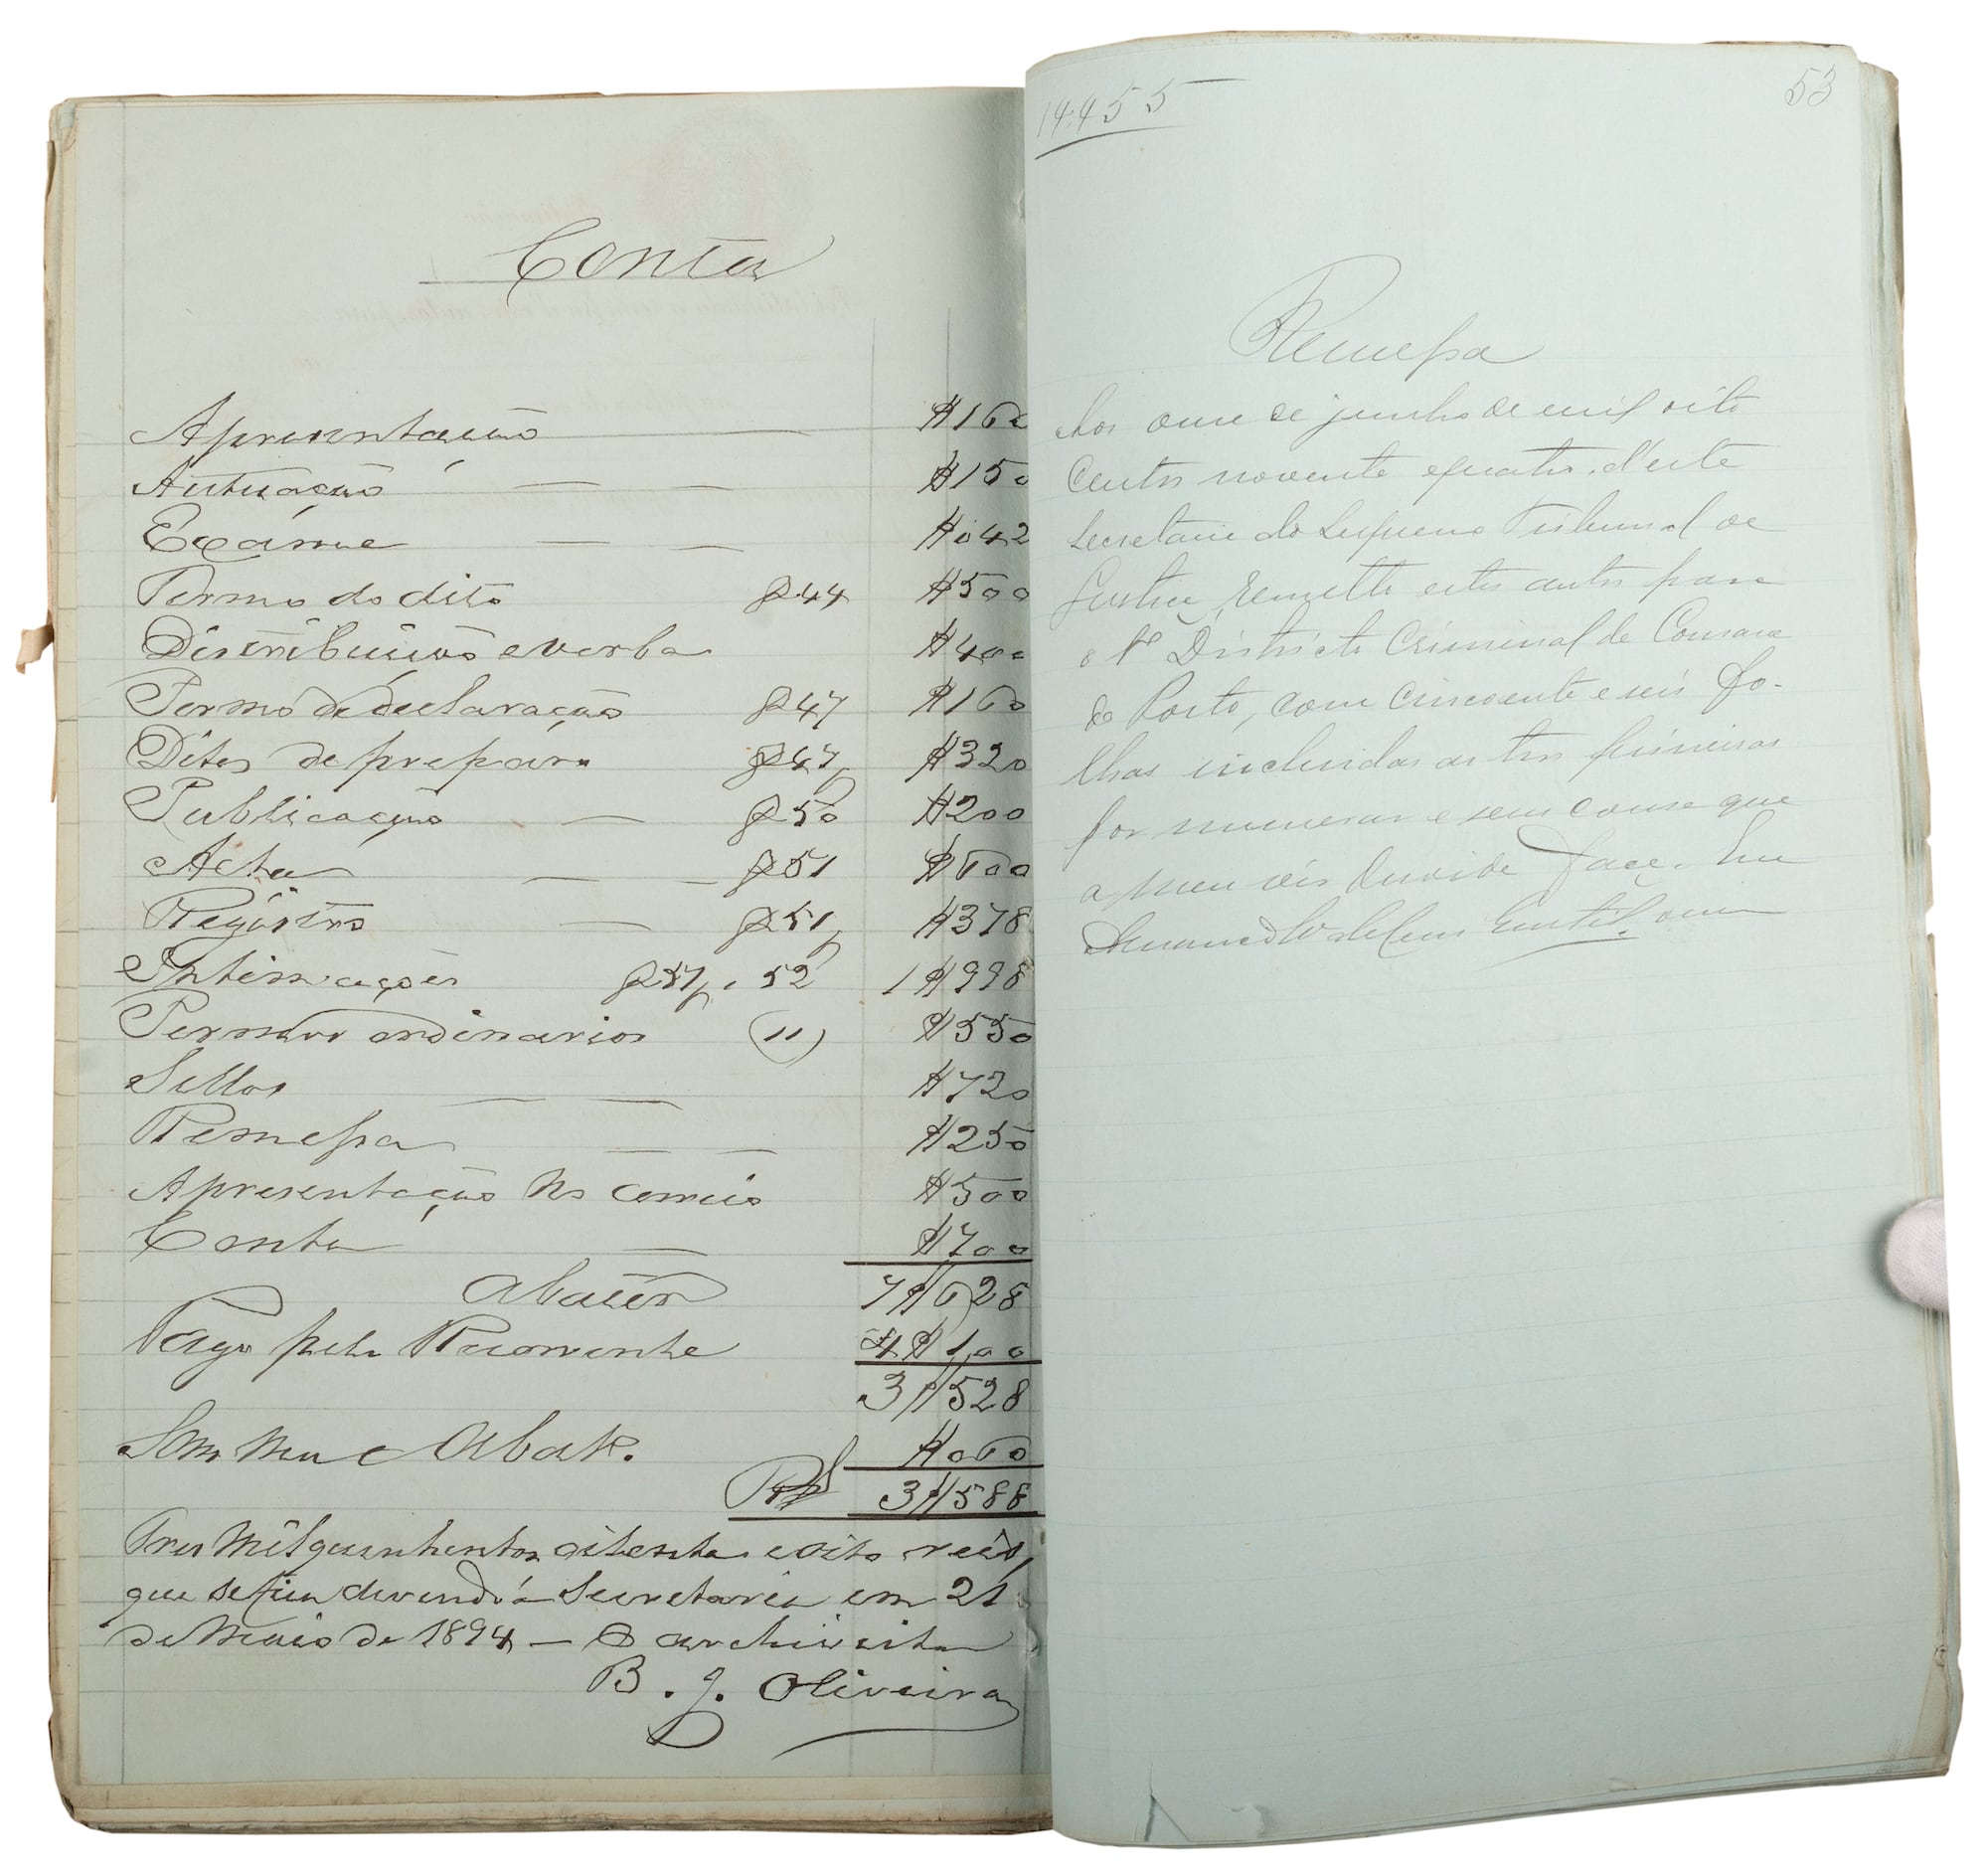 Conta
Apresentação $160
Autuação $150
Exáme $042
Termo do dito f 44 $500
Distribuição e verba $400
Termo de declaração f 47 $160
Ditos de preparo f 47 $320
Publicação f 50 $200
Acta f 51 $600
Registro f 51 $378
Intimações f 51, 52 1$998
Termos ordinarios (11) $550
Sellos $720
Remessa $250
Apresentação no correio $500
Conta $700
Abater 7$628
Pago pelo Recorrente 4$100
3$528
$060
Rs 3$588
Tres mil quinhentos oitenta e oito reis,
que se fica devendo á Secretaria em 21
de Maio de 1894 — O archivista
B. J. Oliveira
14:455
53
Remessa
Aos onze de junho de mil oito
centos noventa e quatro, d'esta
Secretaria do Supremo Tribunal de
Justiça, remetto estes autos para
o 1º Districto Criminal da Comarca
do Porto, com cincoenta e seis fo-
lhas incluidas as tres primeiras
por numerar e sem cousa que
a meu vêr duvida faça. Eu